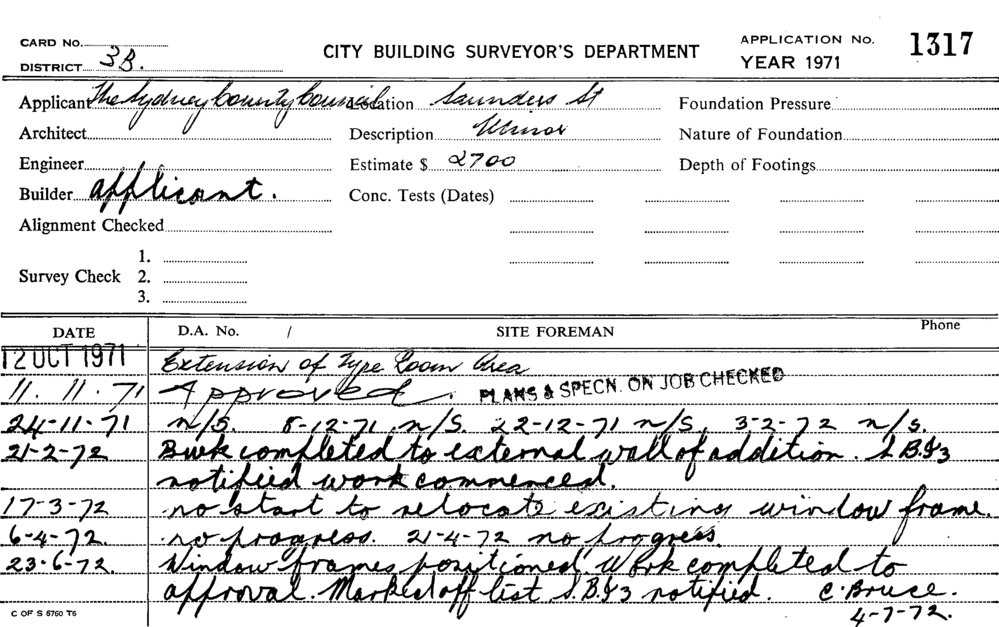 CARD No.
DISTRICT 3B.
CITY BUILDING SURVEYOR'S DEPARTMENT
APPLICATION No. 1317
YEAR 1971
Applicant The Sydney County Council Location Saunders St Foundation Pressure
Architect Description Minor Nature of Foundation
Engineer Estimate $ 2700 Depth of Footings
Builder applicant. Conc. Tests (Dates)
Alignment Checked
Survey Check 1.
2.
3.
DATE D.A. No. / SITE FOREMAN Phone
12 OCT 1971 Extension of Type Room Area
11. 11. 71 Approved. PLANS & SPECN. ON JOB CHECKED
24-11-71 n/s. 8-12-71 n/s. 22-12-71 n/s, 3-2-72 n/s.
21-2-72 Bwk completed to external wall of addition. S.B.I/3
notified work commenced.
17-3-72 no start to relocate existing window frame.
6-4-72. no progress. 21-4-72 no progress.
23-6-72. Window frames positioned. Work completed to
approval. Marked off list S.B.I/3 notified. C. Bruce.
4-7-72.
C OF S 6760 T6